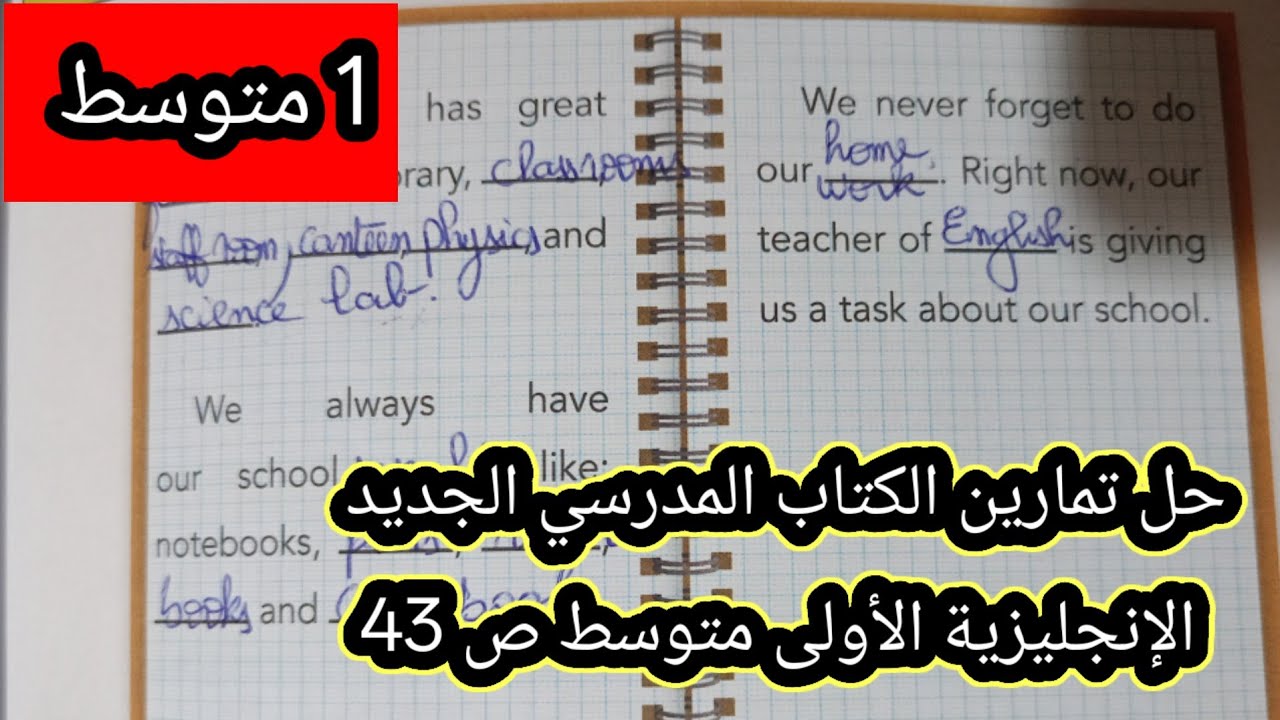 1 متوسط
has great
classrooms
staff room, canteen, physics, and
science lab.
We always have
our school like:
notebooks,
books and
We never forget to do
our home work. Right now, our
teacher of English is giving
us a task about our school.
حل تمارين الكتاب المدرسي الجديد
الإنجليزية الأولى متوسط ص 43